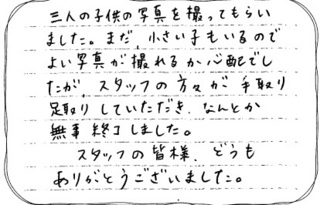 三人の子供の写真を撮ってもらい
ました。まだ、小さい子もいるので
よい写真が撮れるか心配でし
たが、スタッフの方々が手取り
足取りしていただき、なんとか
無事終了しました。
スタッフの皆様、どうも
ありがとうございました。